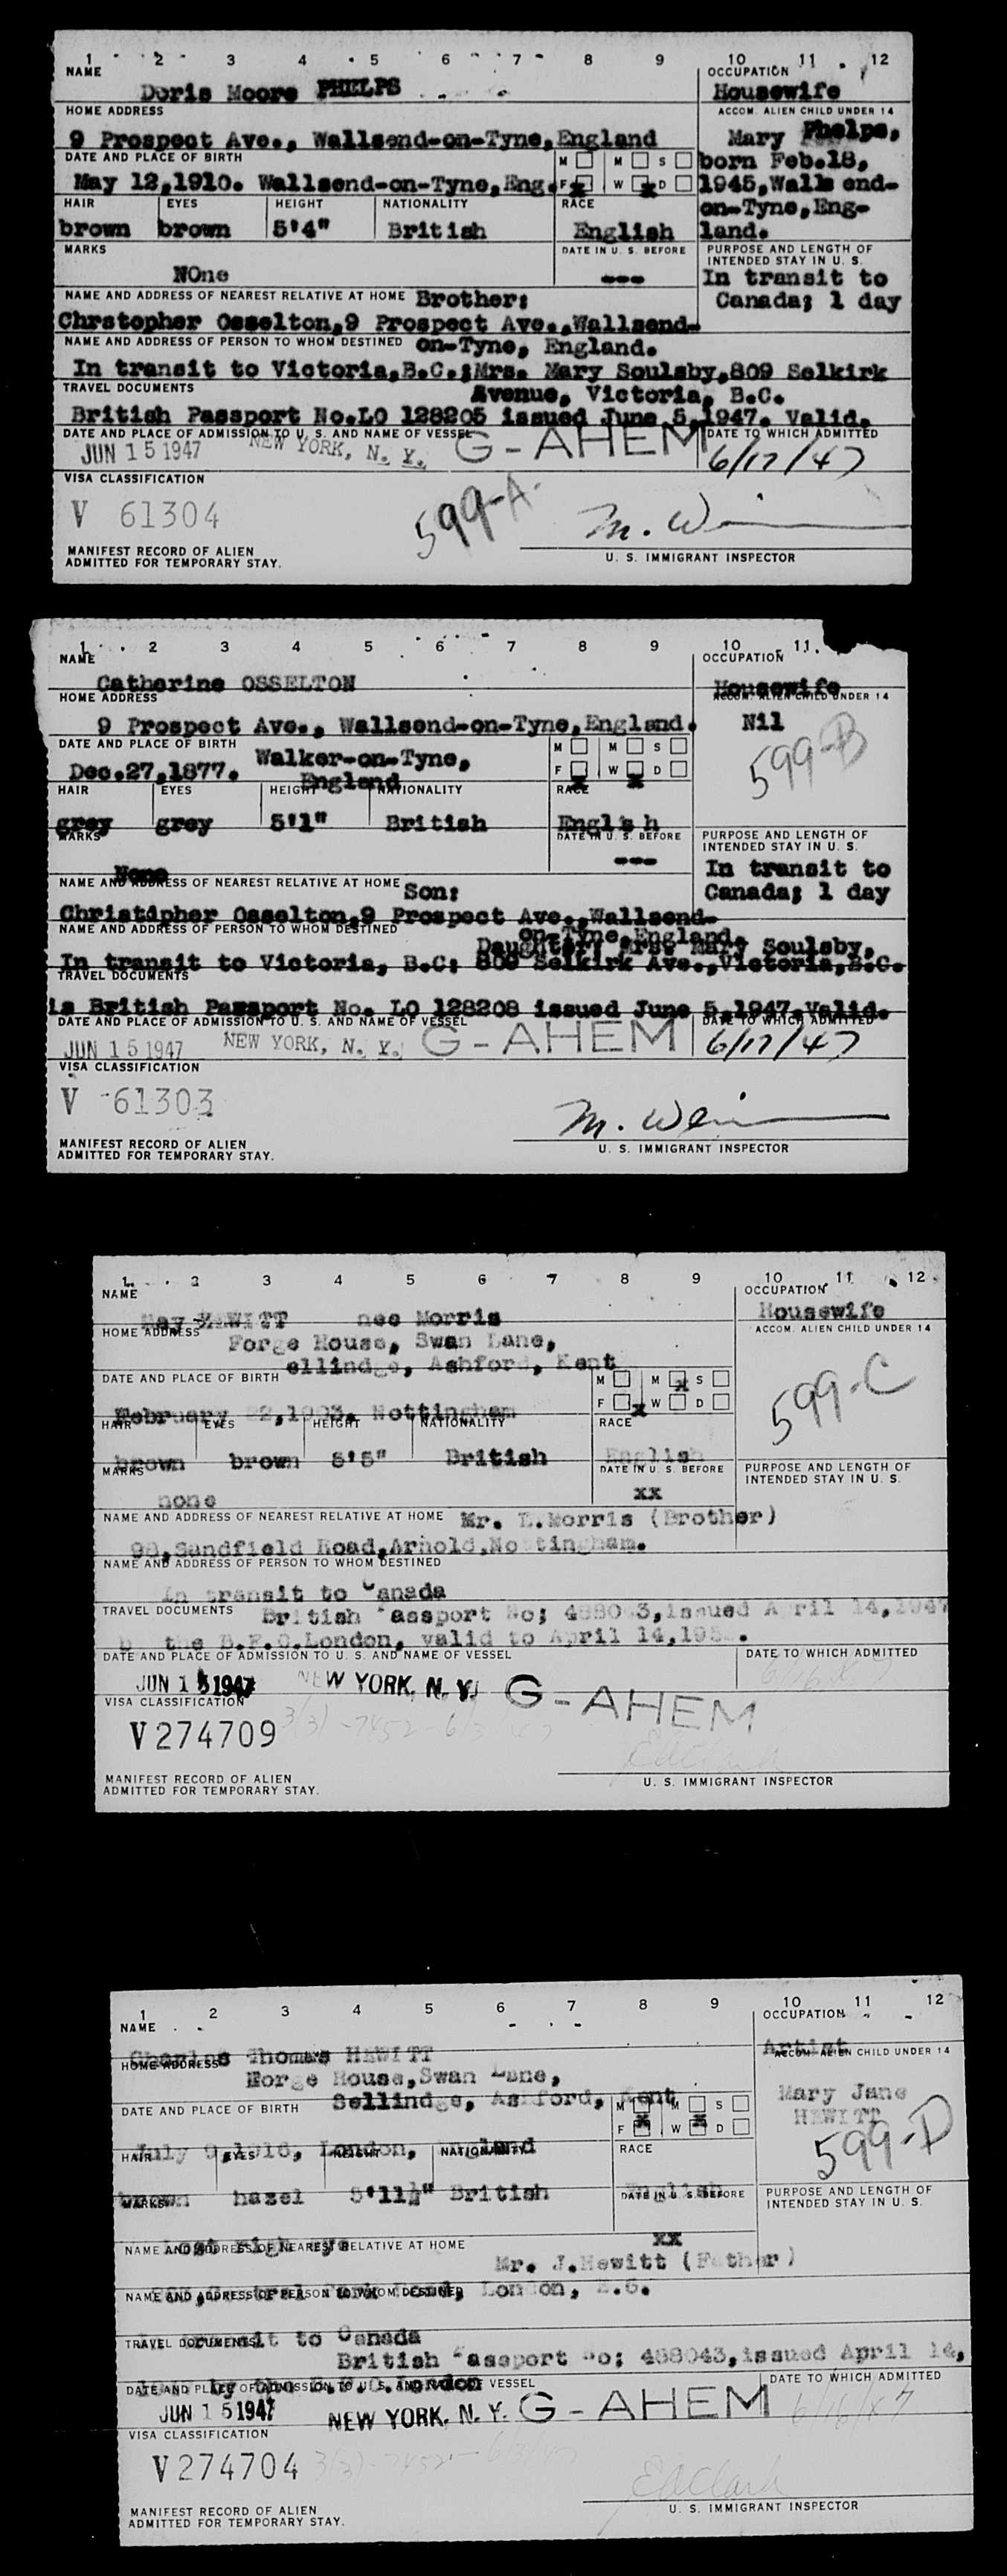 1 2 3 4 5 6 7 8 9 10 11 12
NAME OCCUPATION
Doris Moore PHELPS Housewife
HOME ADDRESS ACCOM. ALIEN CHILD UNDER 14
9 Prospect Ave., Wallsend-on-Tyne, England Mary Phelps,
DATE AND PLACE OF BIRTH M M S born Feb.18,
May 12,1910. Wallsend-on-Tyne, Eng. F W D 1945, Walls end-
HAIR EYES HEIGHT NATIONALITY RACE on-Tyne, Eng-
brown brown 5'4" British English land.
MARKS DATE IN U. S. BEFORE PURPOSE AND LENGTH OF INTENDED STAY IN U. S.
NOne --- In transit to
NAME AND ADDRESS OF NEAREST RELATIVE AT HOME Brother: Canada; 1 day
Chrstopher Osselton,9 Prospect Ave.,Wallsend-
NAME AND ADDRESS OF PERSON TO WHOM DESTINED on-Tyne, England.
In transit to Victoria,B.C.;Mrs. Mary Soulsby,809 Selkirk
TRAVEL DOCUMENTS Avenue, Victoria, B.C.
British Passport No.LO 128205 issued June 5,1947. Valid.
DATE AND PLACE OF ADMISSION TO U. S. AND NAME OF VESSEL DATE TO WHICH ADMITTED
JUN 15 1947 NEW YORK, N. Y. G-AHEM 6/17/47
VISA CLASSIFICATION
V 61304 599-A.
MANIFEST RECORD OF ALIEN U. S. IMMIGRANT INSPECTOR
ADMITTED FOR TEMPORARY STAY.
1 2 3 4 5 6 7 8 9 10 11
NAME OCCUPATION
Catherine OSSELTON Housewife
HOME ADDRESS ACCOM. ALIEN CHILD UNDER 14
9 Prospect Ave., Wallsend-on-Tyne, England. Nil
DATE AND PLACE OF BIRTH Walker-on-Tyne, M M S 599-B
Dec.27,1877. England F W D
HAIR EYES HEIGHT NATIONALITY RACE
grey grey 5'1" British Engl s h
MARKS DATE IN U. S. BEFORE PURPOSE AND LENGTH OF INTENDED STAY IN U. S.
None --- In transit to
NAME AND ADDRESS OF NEAREST RELATIVE AT HOME Son: Canada; 1 day
Christopher Osselton,9 Prospect Ave.,Wallsend-
NAME AND ADDRESS OF PERSON TO WHOM DESTINED on-Tyne, England.
Daughter, Mrs. Mary Soulsby,
In transit to Victoria, B.C: 809 Selkirk Ave.,Victoria,B.C.
TRAVEL DOCUMENTS
British Passport No. LO 128208 issued June 5,1947.Valid.
DATE AND PLACE OF ADMISSION TO U. S. AND NAME OF VESSEL DATE TO WHICH ADMITTED
JUN 15 1947 NEW YORK, N. Y. G-AHEM 6/17/47
VISA CLASSIFICATION
V 61303
MANIFEST RECORD OF ALIEN U. S. IMMIGRANT INSPECTOR
ADMITTED FOR TEMPORARY STAY.
1 2 3 4 5 6 7 8 9 10 11 12
NAME OCCUPATION
May HEWITT nee Morris Housewife
HOME ADDRESS ACCOM. ALIEN CHILD UNDER 14
Forge House, Swan Lane,
ellindge, Ashford, Kent
DATE AND PLACE OF BIRTH M M S 599-C
F W D
February Nottingham
HAIR EYES HEIGHT NATIONALITY RACE
brown brown 5'5" British English
MARKS DATE IN U. S. BEFORE PURPOSE AND LENGTH OF INTENDED STAY IN U. S.
none xx
NAME AND ADDRESS OF NEAREST RELATIVE AT HOME Mr. Morris (Brother)
Sandfield Road,Arnold,
NAME AND ADDRESS OF PERSON TO WHOM DESTINED
In transit to Canada
TRAVEL DOCUMENTS British issued April 14,1947
London, valid to April 14,
DATE AND PLACE OF ADMISSION TO U. S. AND NAME OF VESSEL DATE TO WHICH ADMITTED
JUN 15 1947 NEW YORK, N. Y. G-AHEM
VISA CLASSIFICATION
V274709
MANIFEST RECORD OF ALIEN U. S. IMMIGRANT INSPECTOR
ADMITTED FOR TEMPORARY STAY.
1 2 3 4 5 6 7 8 9 10 11 12
NAME OCCUPATION
Charles Thomas HEWITT Artist
HOME ADDRESS ACCOM. ALIEN CHILD UNDER 14
House,Swan Lane,
Sellindge, Ashford, Kent Mary Jane
DATE AND PLACE OF BIRTH M M S HEWITT
F W D 599-D
July London,
HAIR EYES HEIGHT NATIONALITY RACE
brown hazel 5'11½" British English
MARKS DATE IN U. S. BEFORE PURPOSE AND LENGTH OF INTENDED STAY IN U. S.
xx
NAME AND ADDRESS OF NEAREST RELATIVE AT HOME
Mr. J.Hewitt (Father)
NAME AND ADDRESS OF PERSON TO WHOM DESTINED London,
TRAVEL DOCUMENTS to Canada
British 488043,issued April 14,
London
DATE AND PLACE OF ADMISSION TO U. S. AND NAME OF VESSEL DATE TO WHICH ADMITTED
JUN 15 1947 NEW YORK, N. Y. G-AHEM 6/16/47
VISA CLASSIFICATION
V274704
MANIFEST RECORD OF ALIEN U. S. IMMIGRANT INSPECTOR
ADMITTED FOR TEMPORARY STAY.